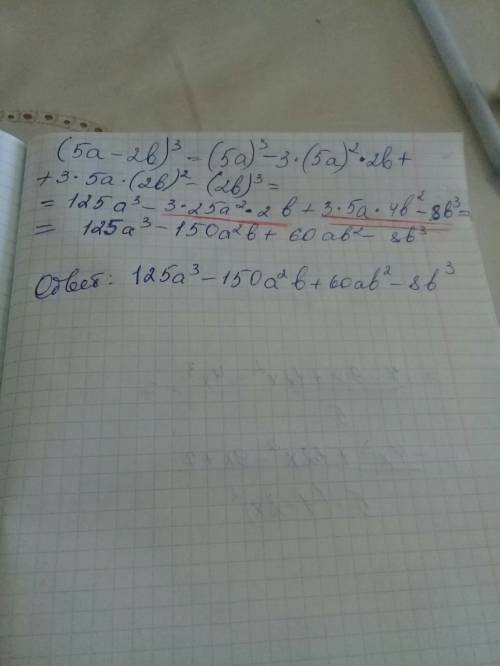 (5a - 2b)³ = (5a)³ - 3·(5a)²·2b +
+ 3·5a·(2b)² - (2b)³ =
= 125a³ - 3·25a²·2b + 3·5a·4b² - 8b³ =
= 125a³ - 150a²b + 60ab² - 8b³
Ответ: 125a³ - 150a²b + 60ab² - 8b³